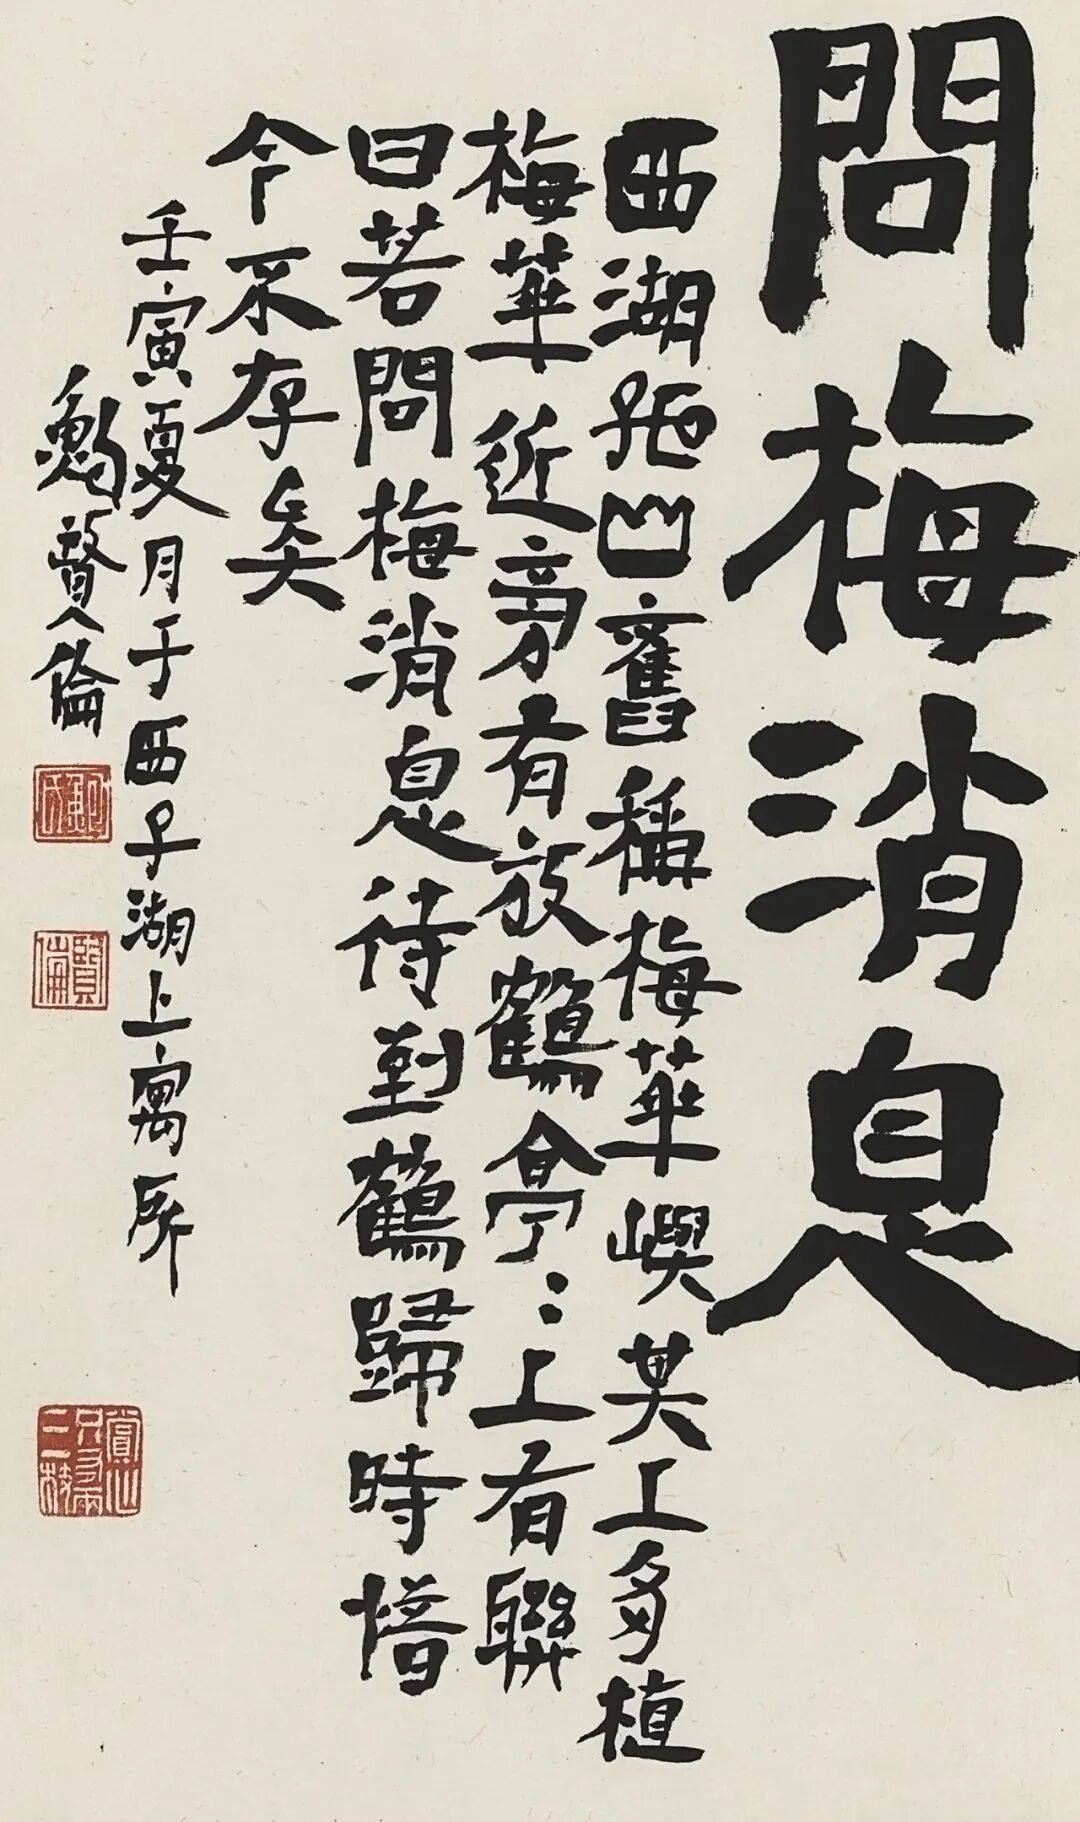 問梅消息
西湖孤山舊稱梅華嶼其上多植
梅華近旁有放鶴亭〻上有聯
曰若問梅消息待到鶴歸時惜
今不存矣
壬寅夏月于西子湖上寓所
鮑賢倫
賢倫
賞心只有兩三枝